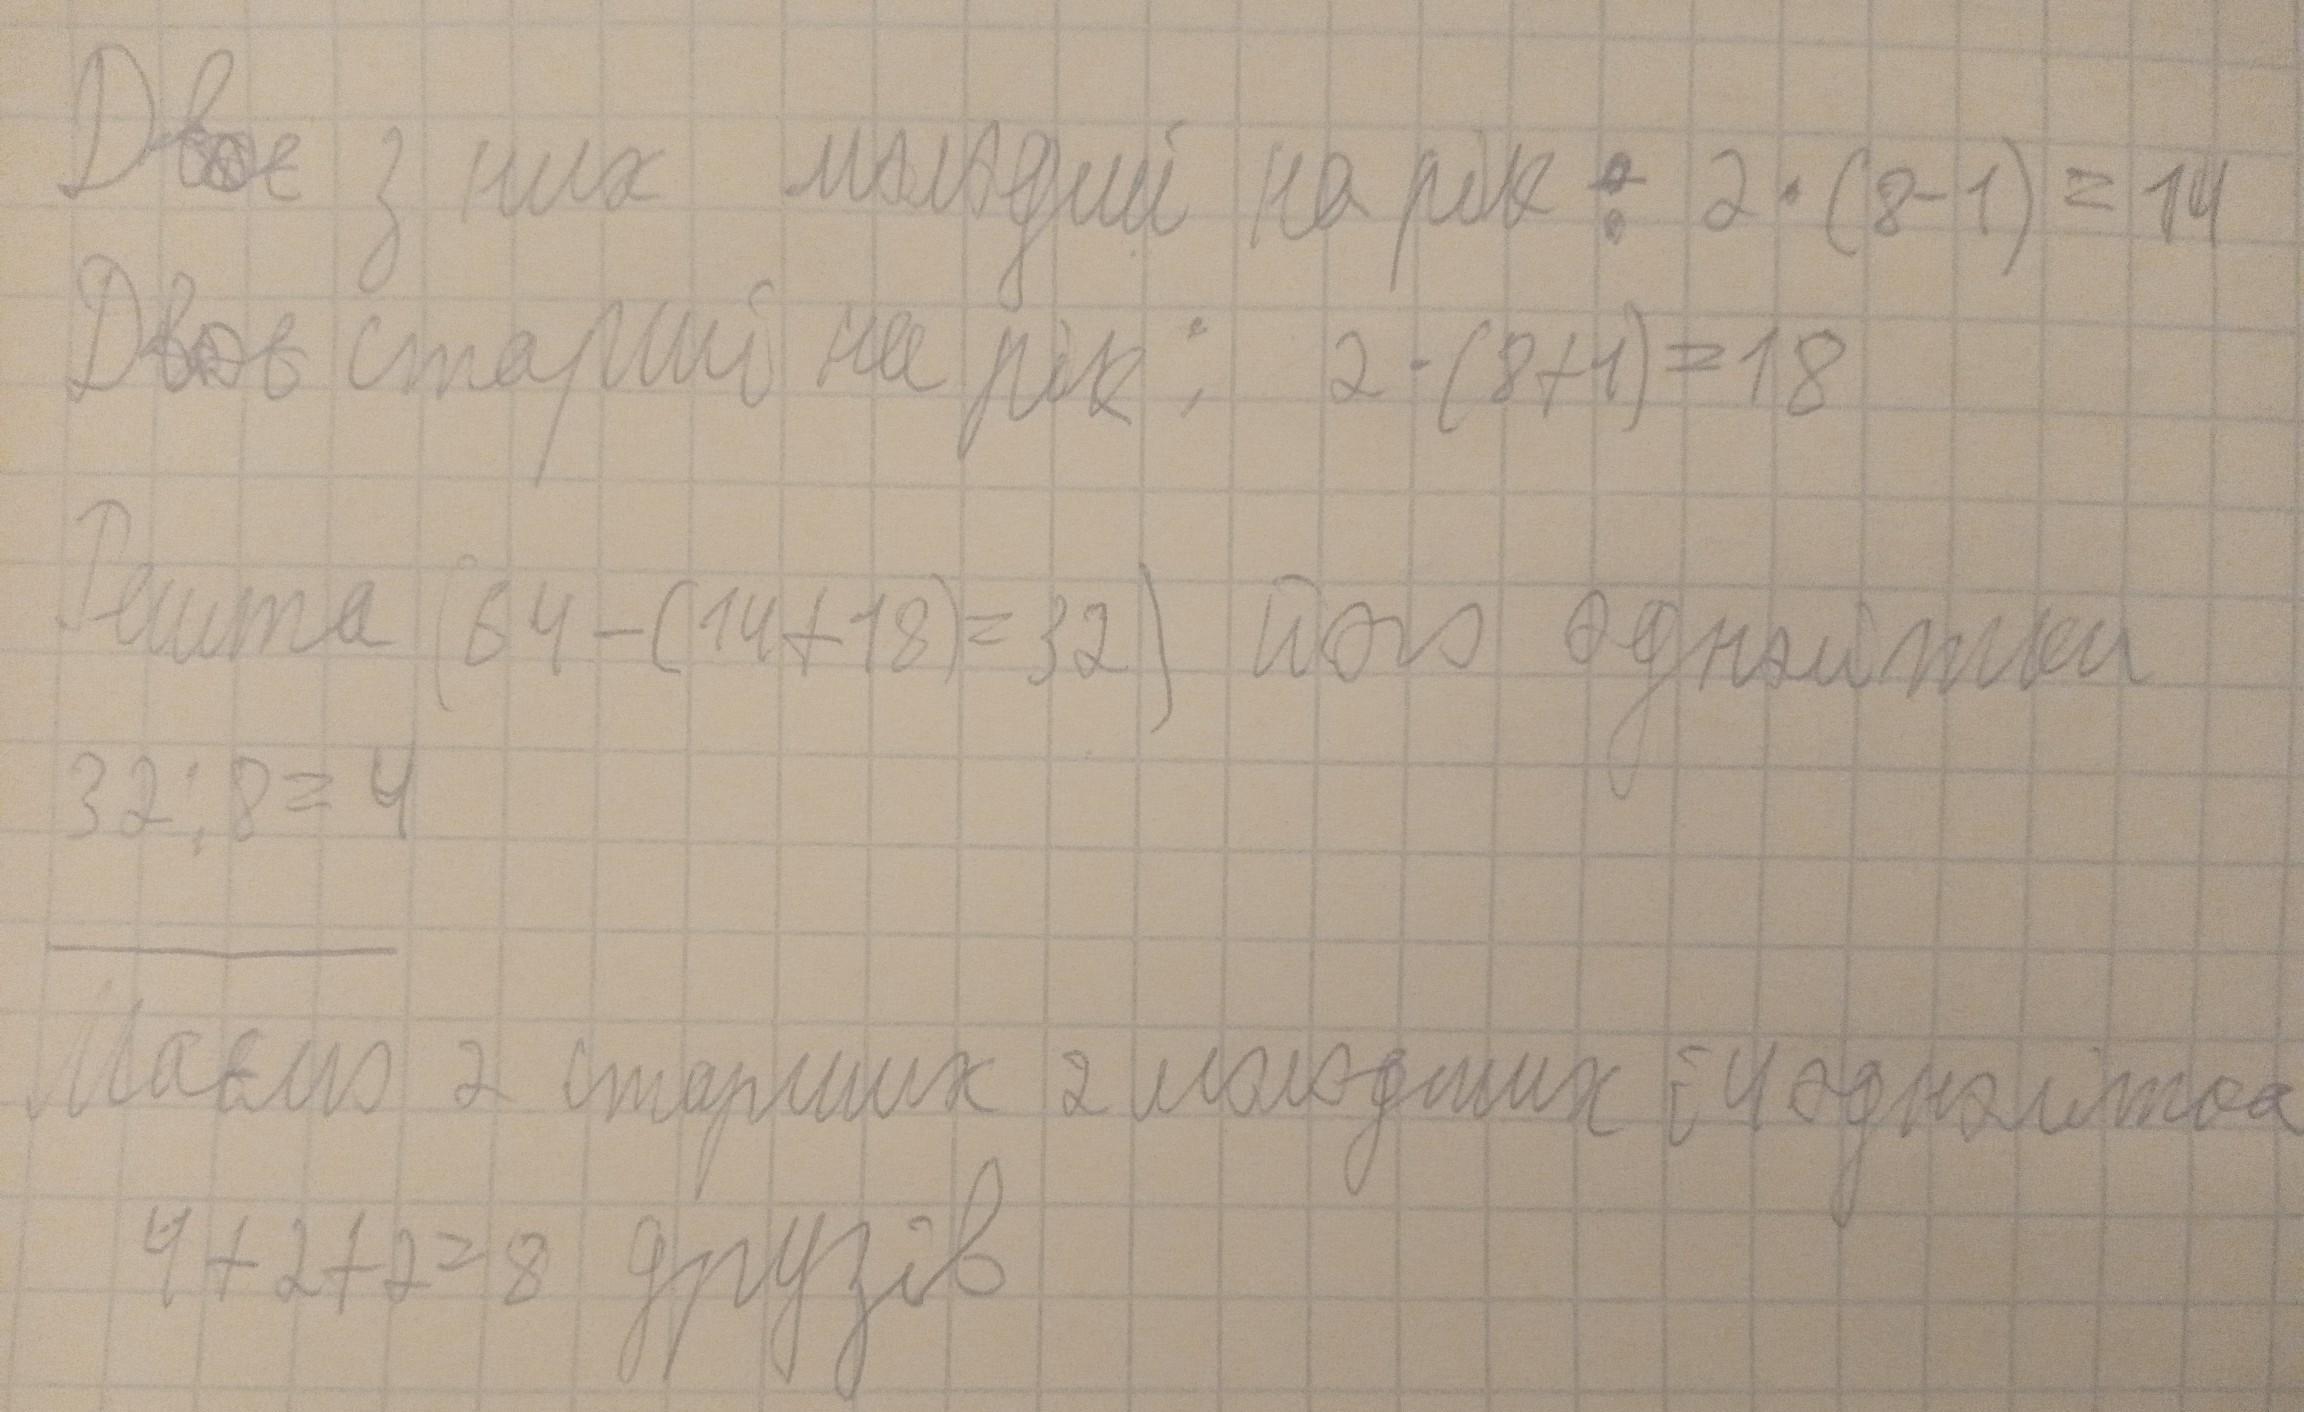 Двоє з них молодші на рік : 2 · (8-1) = 14
Двоє старші на рік : 2 · (8+1) = 18
Решта (64 - (14+18) = 32) його однолітки
32 : 8 = 4
Маємо 2 старших 2 молодших і 4 однолітка
4+2+2=8 друзів